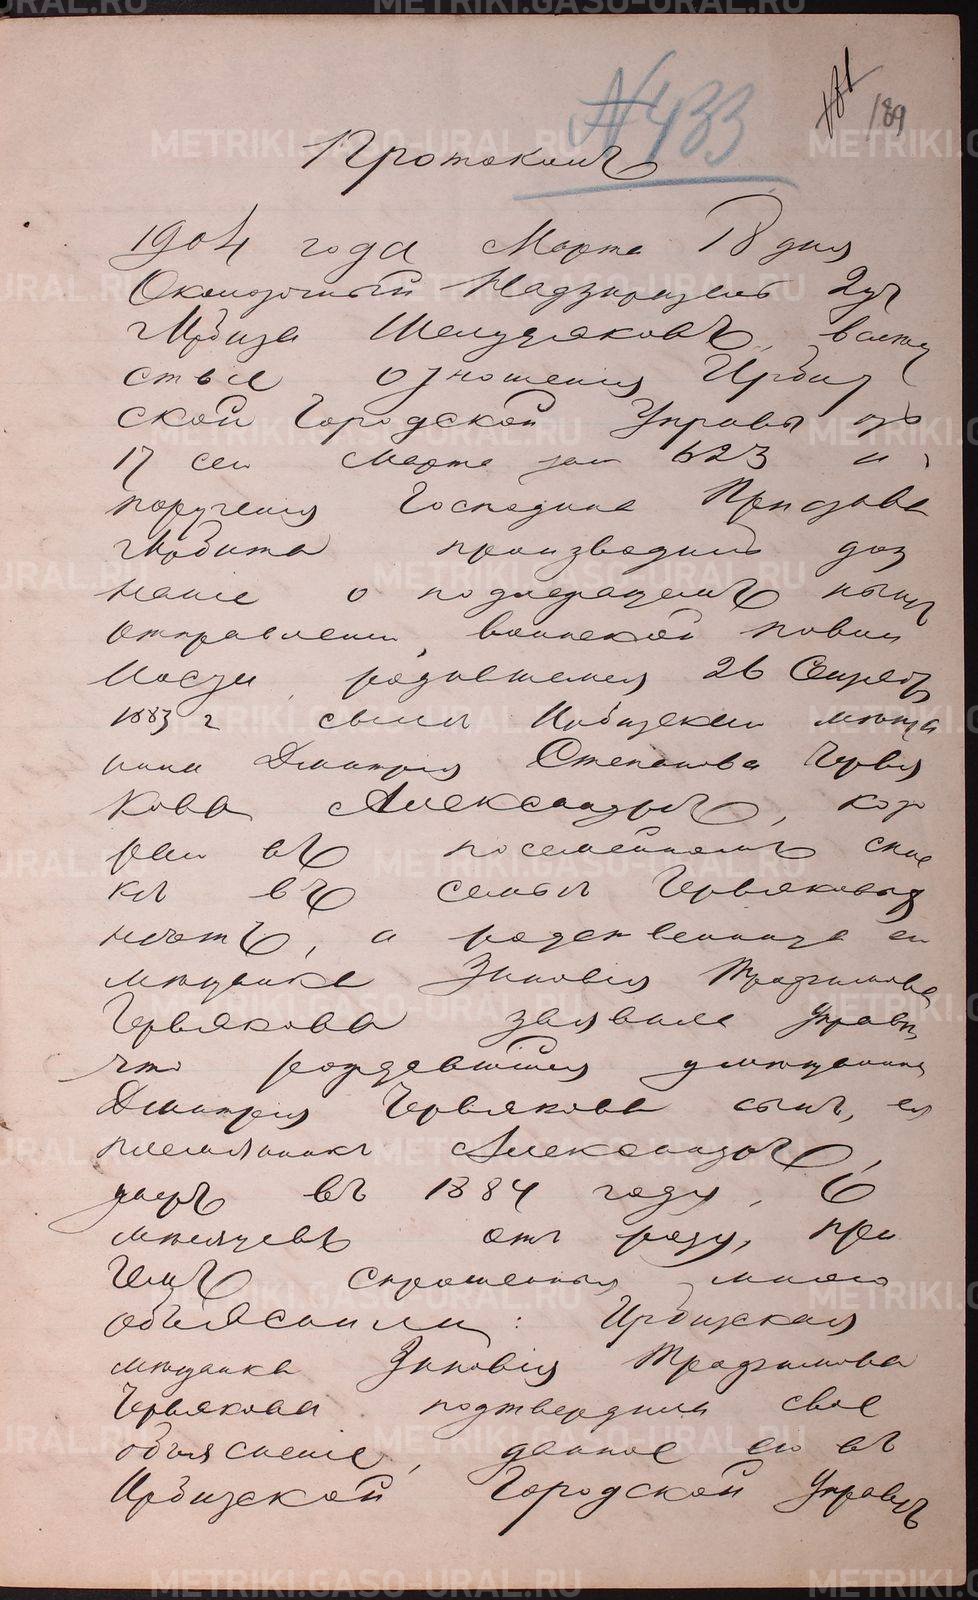 № 433
189
Протоколъ
1904 года Марта 18 дня
Околодочный Надзиратель 2 уч
г Ирбита Шелудяковъ, вслед
ствіе отношенія Ирбит
ской Городской Управы отъ
17 сего Марта за № 623 и
порученія Господина Пристава
г Ирбита производилъ доз
наніе о подлежащемъ нынѣ
отправленію воинской повин
ности, родившемся 26 Сентября
1883 г сынѣ Ирбитскаго мѣща
нина Дмитрія Степанова Червя
кова Александрѣ, кото
раго въ посемейномъ спис
кѣ въ семьѣ Червяковыхъ
нѣтъ, а родственница его
мѣщанка Зиновія Трофимова
Червякова заявила Управѣ,
что родившійся у мѣщанина
Дмитрія Червякова сынъ, ея
племянникъ Александръ,
умеръ въ 1884 году, 6
мѣсяцевъ отъ роду, при
чемъ спрошенные мною
объяснили: Ирбитская
мѣщанка Зиновія Трофимова
Червякова подтвердила свое
объясненіе, данное ею въ
Ирбитской Городской Управѣ
METRIKI.GASO-URAL.RU